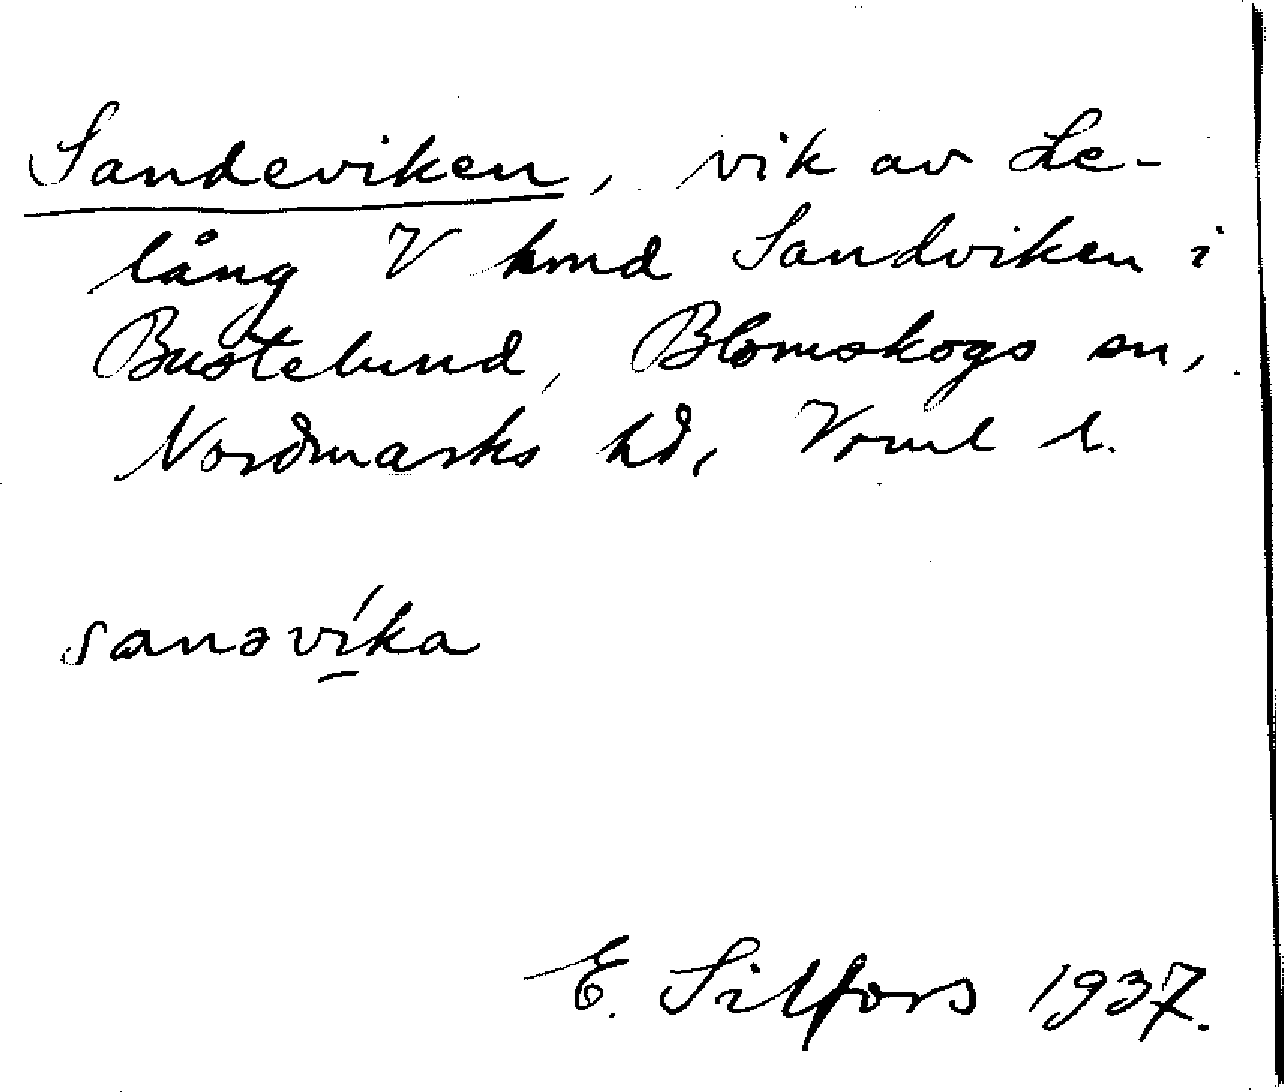 Sandeviken, vik av Le-
lång V hmd Sandviken i
Bustelund, Blomskogs sn,
Nordmarks hd, Vrml l.
sanəvíka
E. Silfors 1937.